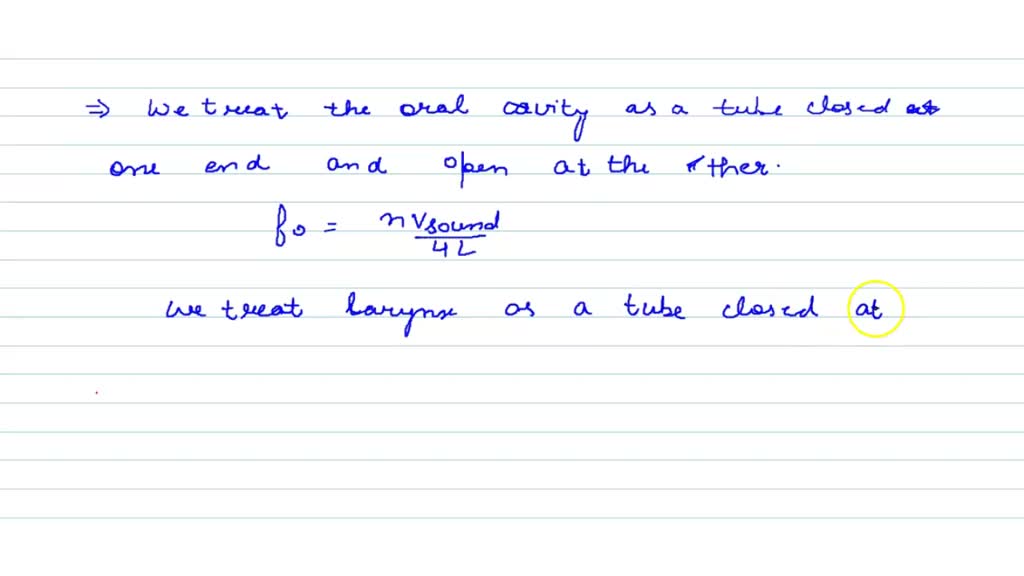 ⇒ We treat the oral cavity as a tube closed at
one end and open at the other.
fo = nVsound / 4L
We treat larynx as a tube closed at